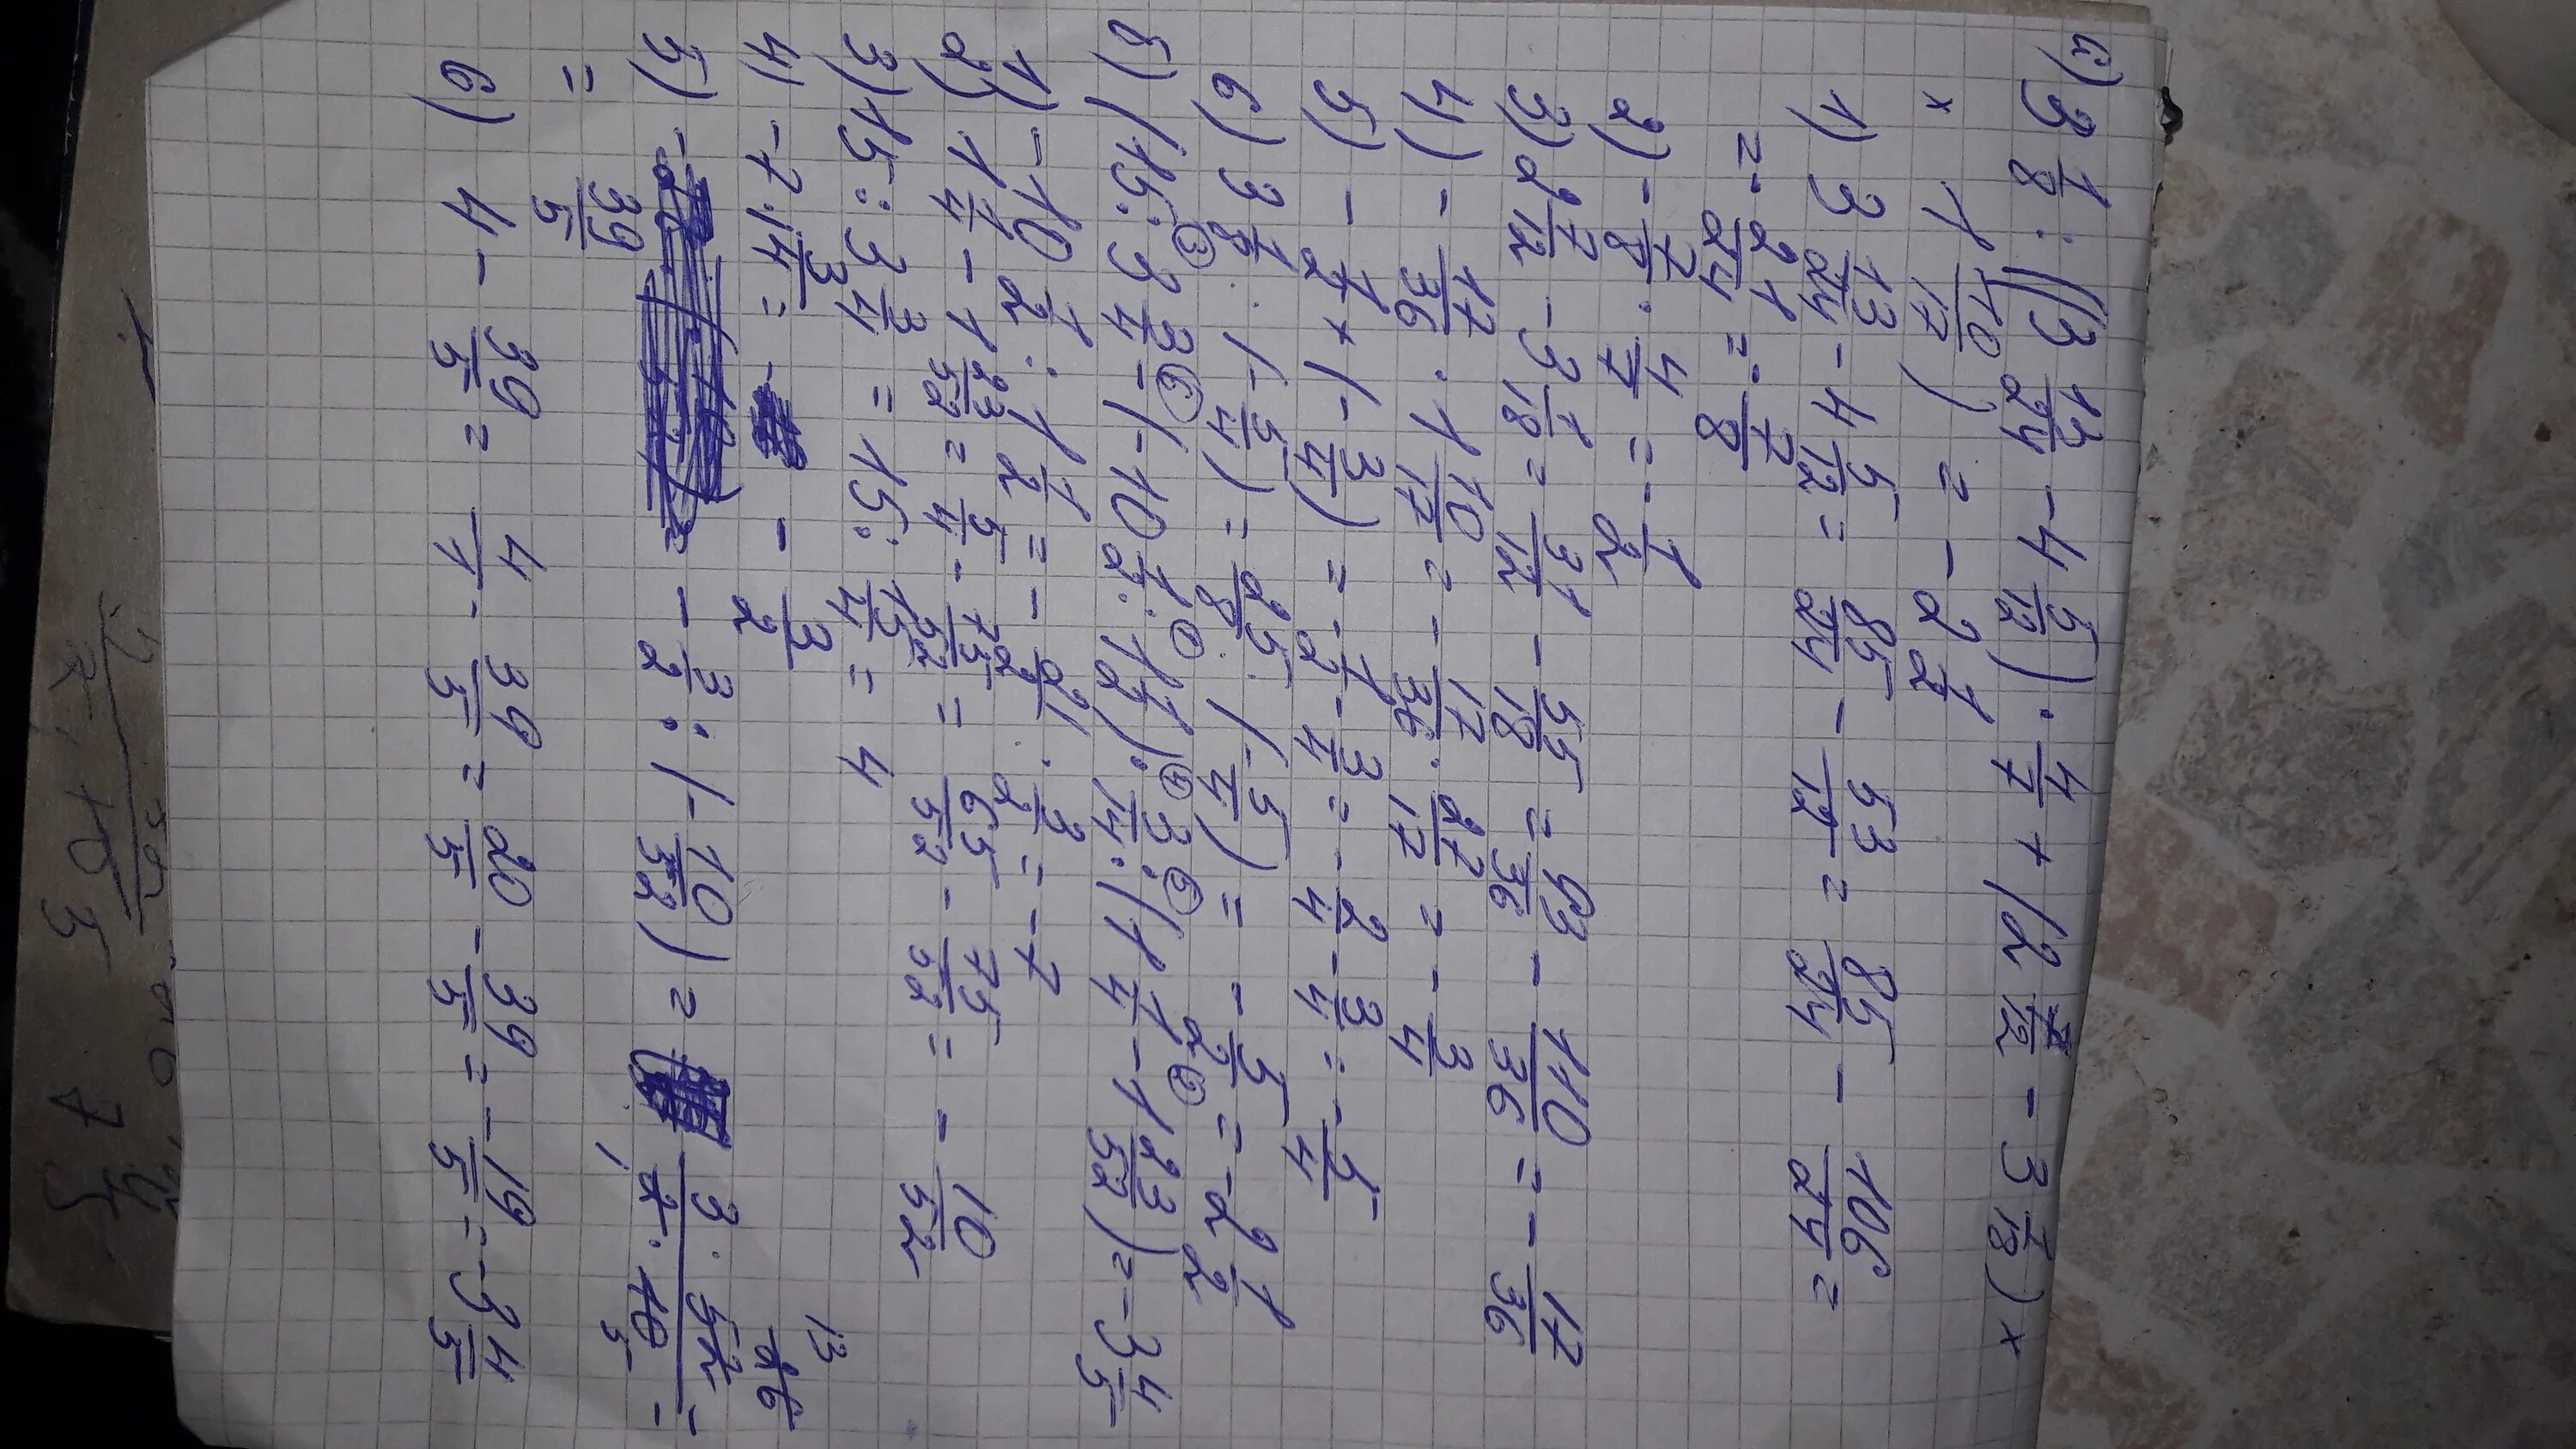 а) 3 1/8 : ((3 13/24 - 4 5/12) · 4/7 + (2 7/12 - 3 1/18) ×
× 1 10/17) = -2 1/2
1) 3 13/24 - 4 5/12 = 85/24 - 53/12 = 85/24 - 106/24 =
= - 21/24 = - 7/8
2) - 7/8 · 4/7 = - 1/2
3) 2 7/12 - 3 1/18 = 31/12 - 55/18 = 93/36 - 110/36 = - 17/36
4) - 17/36 · 1 10/17 = - 17/36 · 27/17 = - 3/4
5) - 1/2 + (- 3/4) = - 1/2 - 3/4 = - 2/4 - 3/4 = - 5/4
6) 3 1/8 : (- 5/4) = 25/8 : (- 5/4) = - 5/2 = -2 1/2
б) (15 : 3 3/4 - (-10 1/2 : 1 1/2) · 3/14 : (1 1/4 - 1 23/52) = -3 4/5
1) -10 1/2 : 1 1/2 = - 21/2 : 3/2 = -7
2) 1 1/4 - 1 23/52 = 5/4 - 75/52 = 65/52 - 75/52 = - 10/52
3) 15 : 3 3/4 = 15 : 15/4 = 4
4) -7 · 3/14 = - 3/2
5) - 3/2 : (- 10/52) = 3 · 52 / 2 · 10 =
= 39/5
6) 4 - 39/5 = 4/1 - 39/5 = 20/5 - 39/5 = - 19/5 = -3 4/5